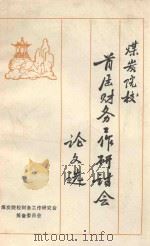 煤炭院校
首届财务工作研讨会
论文选
煤炭院校财务工作研究会
筹备委员会